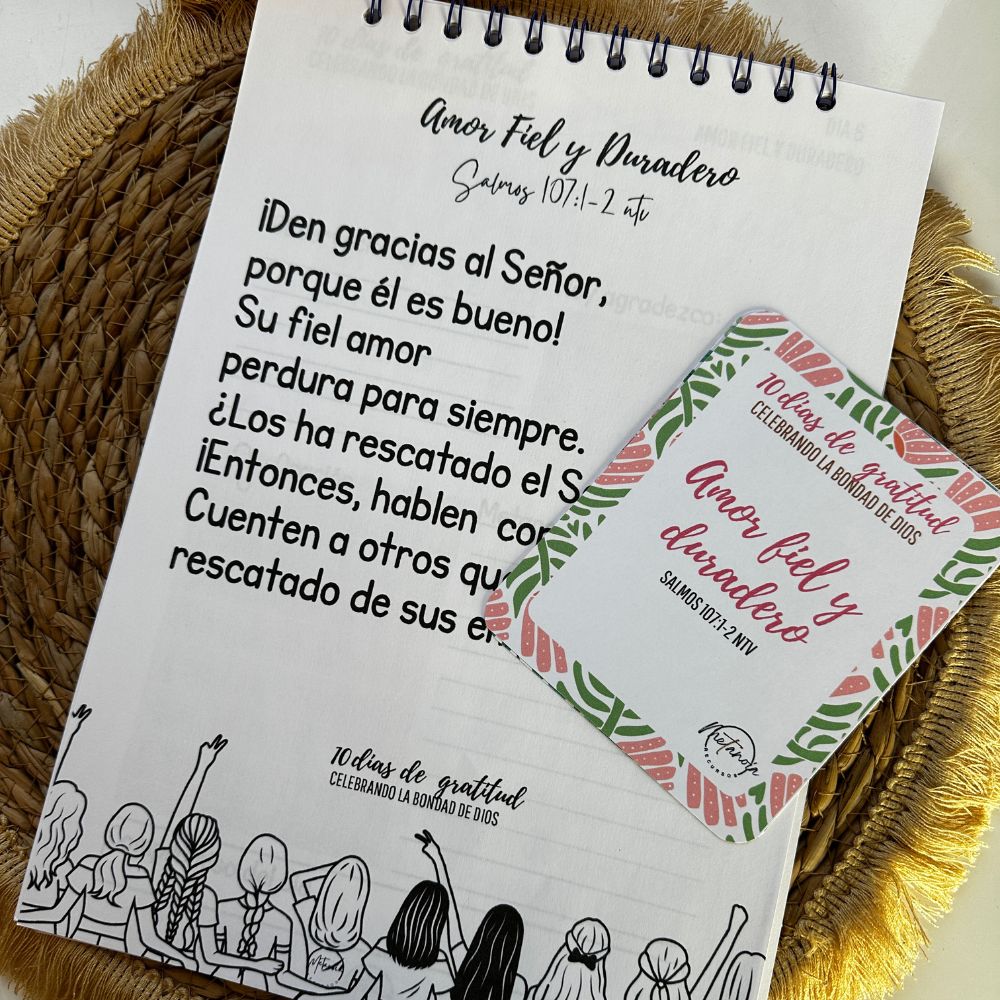 Amor Fiel y Duradero
Salmos 107:1-2 ntv
¡Den gracias al Señor,
porque él es bueno!
Su fiel amor
perdura para siempre.
¿Los ha rescatado el S
¡Entonces, hablen con
Cuenten a otros que
rescatado de sus en
10 días de gratitud
CELEBRANDO LA BONDAD DE DIOS
10 días de gratitud
CELEBRANDO LA BONDAD DE DIOS
Amor fiel y
duradero
SALMOS 107:1-2 NTV
Metanoia
RECURSOS